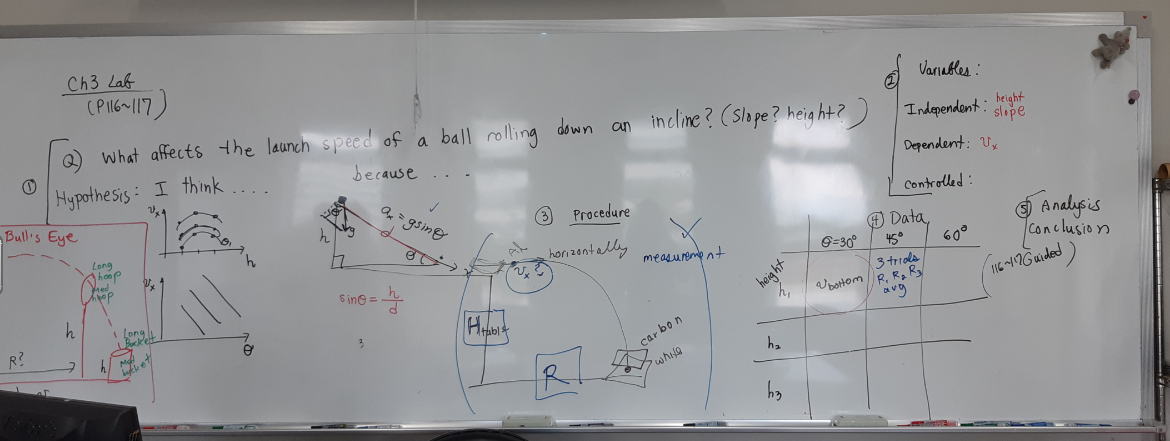 Ch3 Lab
(P116~117)
① Q) What affects the launch speed of a ball rolling down an incline? (Slope? height?)
Hypothesis: I think .... because ...
② Variables:
Independent: height
slope
Dependent: Vx
Controlled:
Bull's Eye
Long hoop
Med hoop
h
Long Bucket
Med bucket
h
R?
Vx
θ1
h
Vx
θ
h
g
a = gsinθ
d
θ
sinθ = h/d
③ Procedure
horizontally
Vx?
measurement
H table
R
carbon
white
④ Data
θ=30° 45° 60°
height
h1 Vbottom
3 trials
R1 R2 R3
avg
h2
h3
⑤ Analysis
Conclusion
(116~117 Guided)